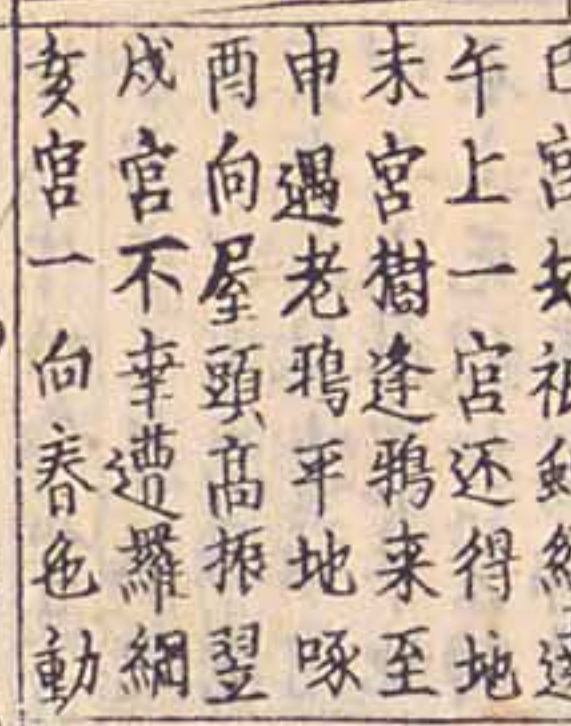 巳宮
午上一宮还得地
未宮樹逢鴉来至
申遇老鴉平地啄
酉向屋頭高振翌
戍宮不幸遭羅網
亥宮一向春色動